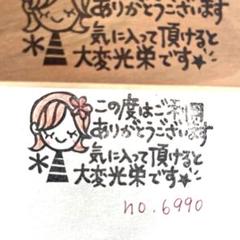 ありがとうございます
気に入って頂けると
大変光栄です
この度はご利用
ありがとうございます
気に入って頂けると
大変光栄です
no.6990